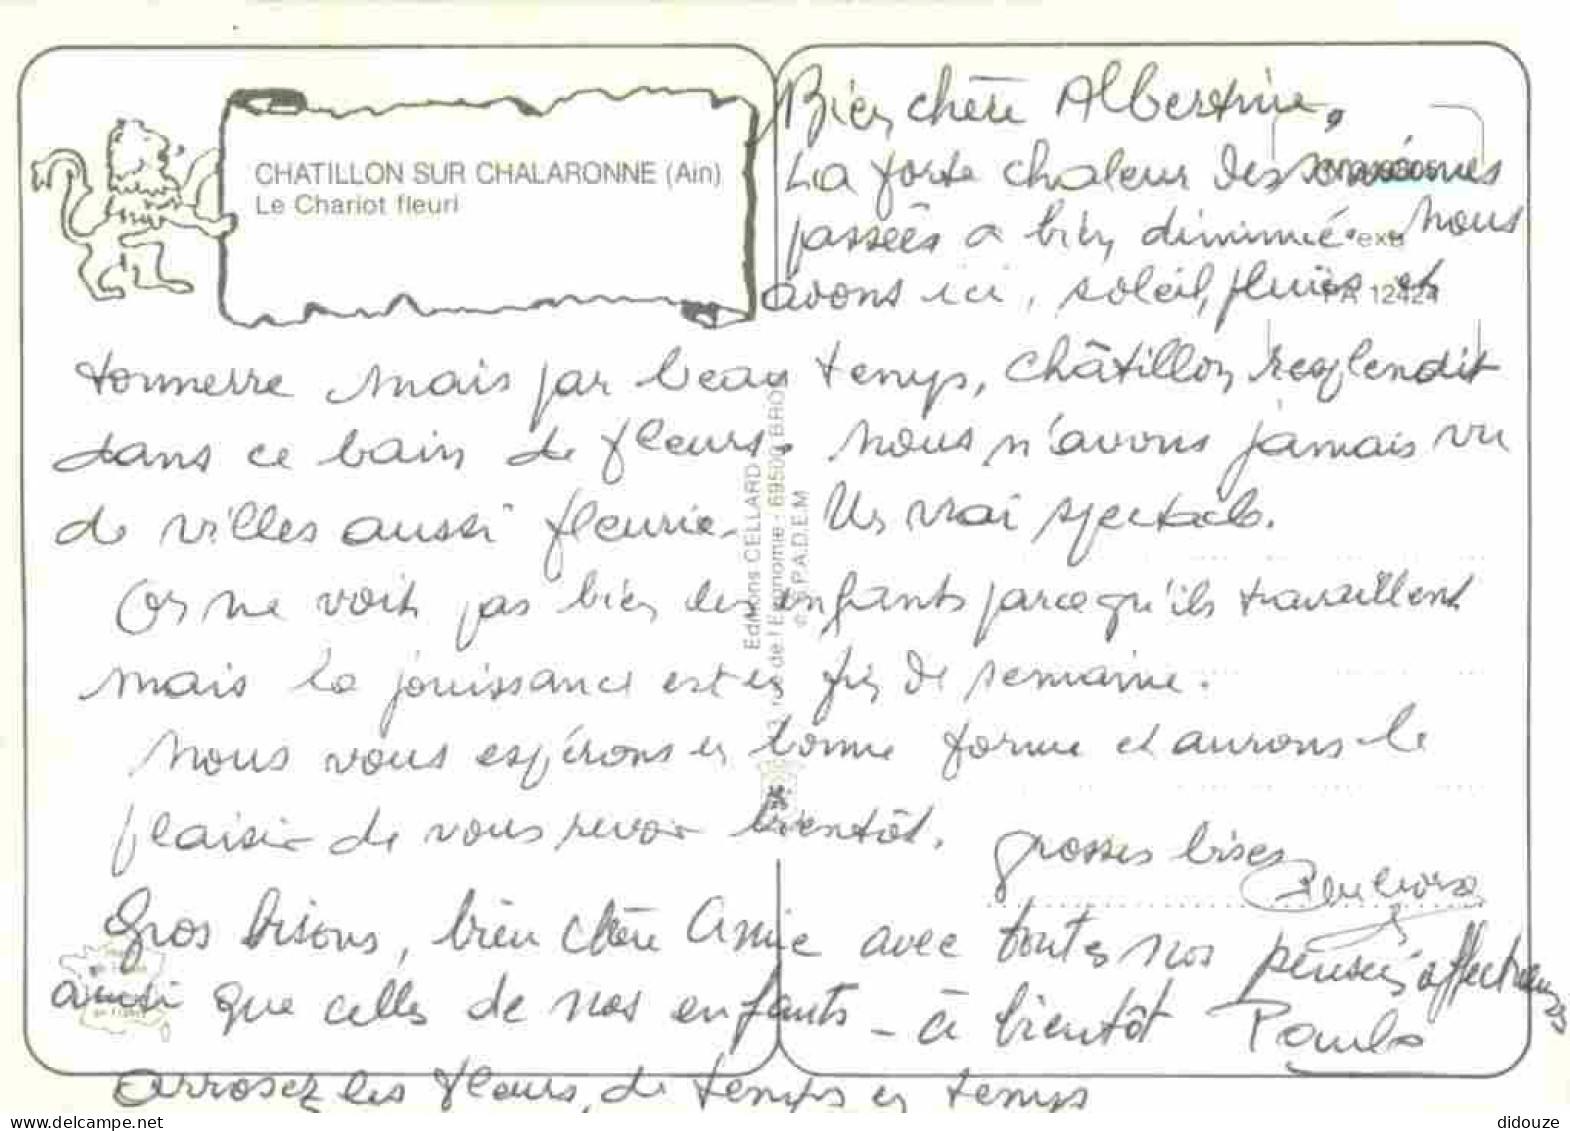 CHATILLON SUR CHALARONNE (Ain)
Le Chariot fleuri
Bien chère Albertine,
La forte chaleur des semaines
passées a bien diminué. Nous
avons ici, soleil, pluies et
tonnerre mais par beau temps, Châtillon resplendit
dans ce bain de fleurs. Nous n'avons jamais vu
de villes aussi fleurie. Un vrai spectacle.
On ne voit pas bien les enfants parce qu'ils travaillent
mais la jouissance est en fin de semaine.
Nous vous espérons en bonne forme et aurons le
plaisir de vous revoir bientôt.
grosses bises
Gros bisous, bien chère Amie avec toutes nos pensées affectueuses
ainsi que celles de nos enfants - à bientôt Paulo
arrosez les fleurs, de temps en temps
Editions CELLARD
3, rue de l'Economie - 69500 BRON
© S.P.A.D.E.M
PA 12424
didouze